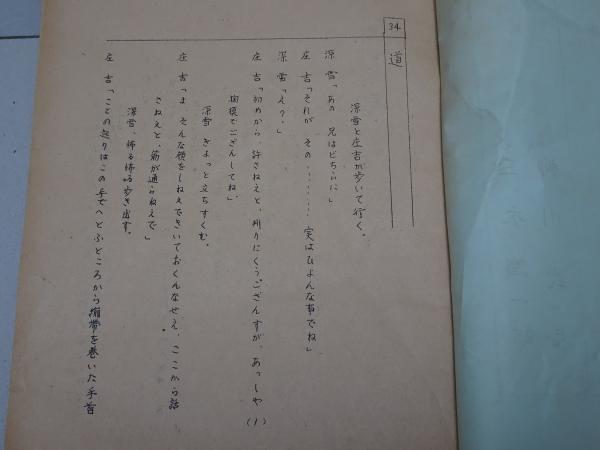 34
道
深雪と庄吉が歩いて行く。
深雪「あの 兄はどちらに」
庄吉「それが その……… 実はひょんな事でね」
深雪「え?」
庄吉「初めから 許さねえと、判りにくうござんすが、あっしや
掏摸でござんしてね」
深雪 ぎょっと立ちすくむ。
庄吉「ま そんな顔をしねえできいておくんなせえ、ここから話
さねえと、筋が通らねえで」
深雪、怖る怖る歩き出す。
庄吉「ことの起りはこの手で〵とふところから繃帯を巻いた手首
(1)